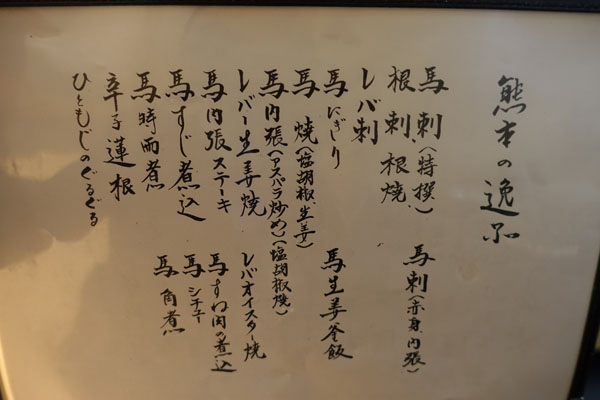 熊本の逸品
馬刺(特撰)
馬刺(赤身、内張)
根刺、根焼
レバ刺
馬にぎり
馬生姜釜飯
馬焼(塩胡椒、生姜)
馬内張(アスパラ炒め)(塩胡椒焼)
レバー生姜焼
レバオイスター焼
馬内張ステキ
馬すね肉の煮込
馬すじ煮込
馬シチュー
馬時雨煮
馬角煮
辛子蓮根
ひともじのぐるぐる